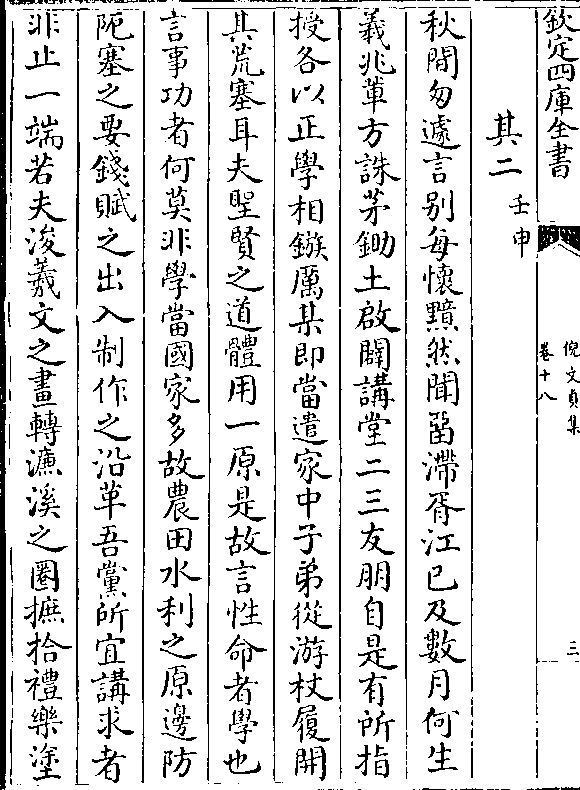 欽定四庫全書
倪文貞集
卷十八
三
其二壬申
秋間匆遽言别每懷黯然聞留滯胥江已及數月何生
義兆輩方誅茅鋤土啟闢講堂二三友朋自是有所指
授各以正學相鏃厲某即當遣家中子弟從游杖履開
其荒塞耳夫聖賢之道體用一原是故言性命者學也
言事功者何莫非學當國家多故農田水利之原邊防
阨塞之要錢賦之出入制作之沿革吾黨所宜講求者
非止一端若夫浚羲文之畫轉濂溪之圈摭拾禮樂塗